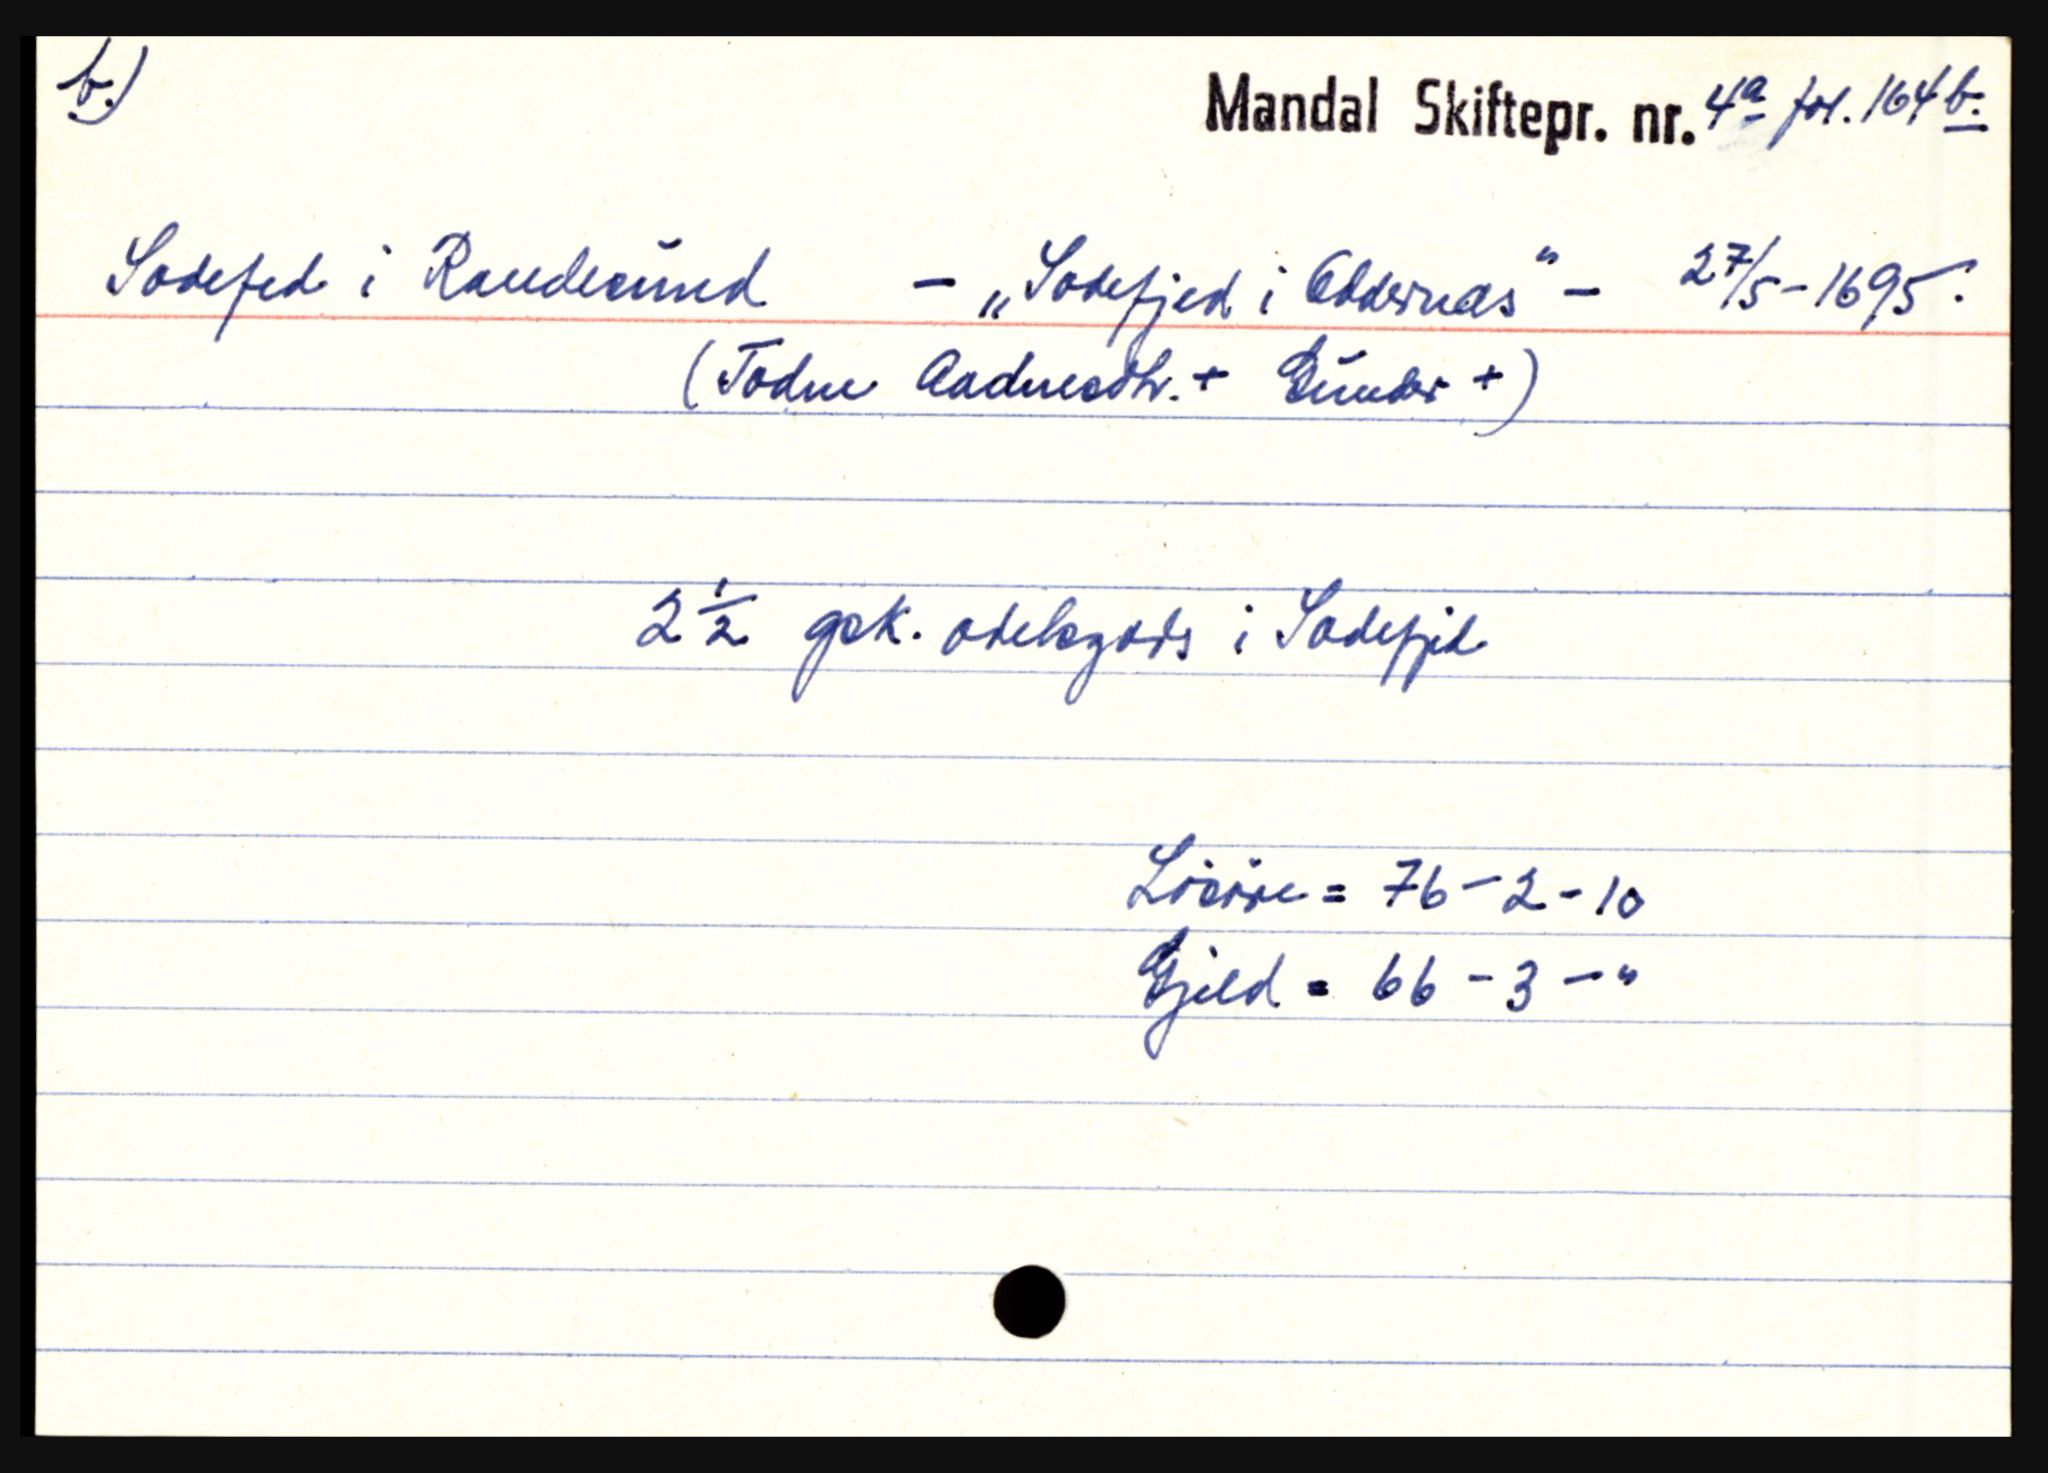 b.)
Mandal Skiftepr. nr. 4a fol. 164 b.
Sodefed i Randesund - „Sodefjed i Oddernæs" - 27/5-1695.
(Todne Aadnesdtr. + Gunder +)
2 1/2 gsk. odelsgods i Sodefjed
Lösöre = 76 - 2 - 10
Gjeld = 66 - 3 - "